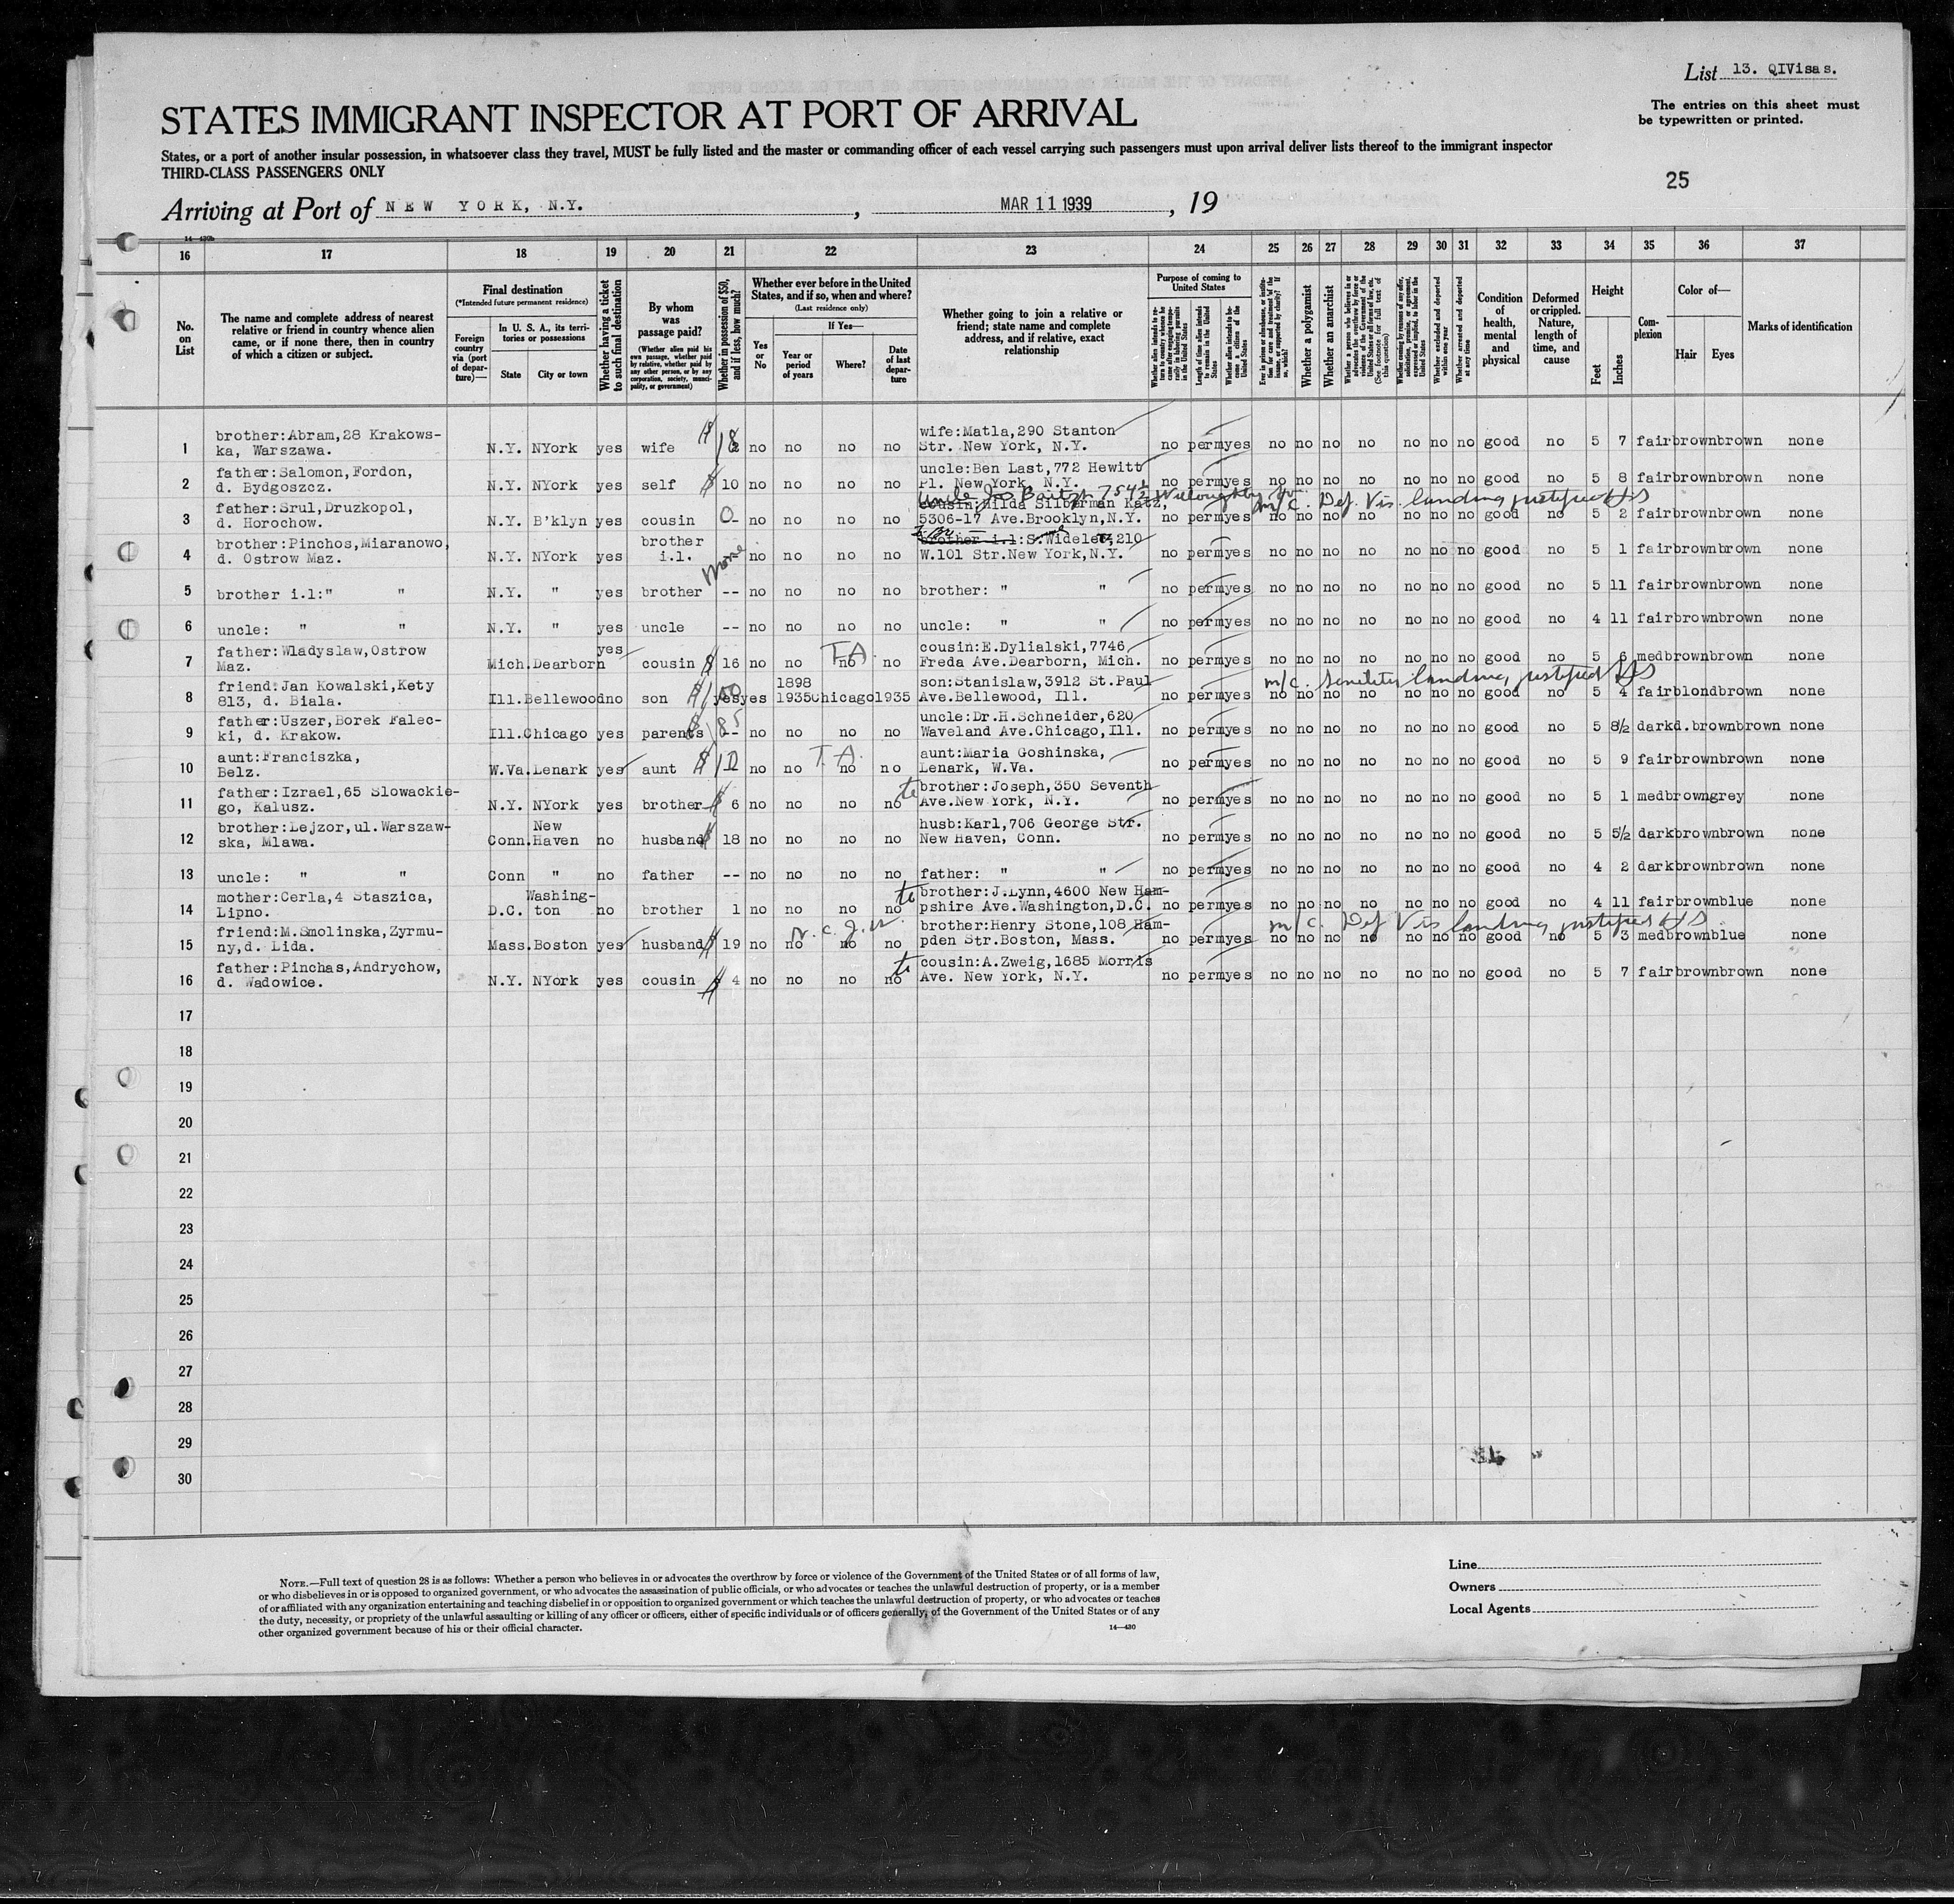 List 13. QIVisas.
The entries on this sheet must
be typewritten or printed.
STATES IMMIGRANT INSPECTOR AT PORT OF ARRIVAL
States, or a port of another insular possession, in whatsoever class they travel, MUST be fully listed and the master or commanding officer of each vessel carrying such passengers must upon arrival deliver lists thereof to the immigrant inspector
THIRD-CLASS PASSENGERS ONLY
25
Arriving at Port of NEW YORK, N.Y. , MAR 11 1939 , 19
16 17 18 19 20 21 22 23 24 25 26 27 28 29 30 31 32 33 34 35 36 37
No. on List
The name and complete address of nearest relative or friend in country whence alien came, or if none there, then in country of which a citizen or subject.
Final destination
(*Intended future permanent residence)
Foreign country via (port of departure)—
In U. S. A., its territories or possessions
State
City or town
Whether having a ticket to such final destination
By whom was passage paid?
(Whether alien paid his own passage, whether paid by relative, whether paid by any other person, or by any corporation, society, municipality, or government)
Whether in possession of $50, and if less, how much?
Whether ever before in the United States, and if so, when and where?
(Last residence only)
Yes or No
If Yes—
Year or period of years
Where?
Date of last departure
Whether going to join a relative or friend; state name and complete address, and if relative, exact relationship
Purpose of coming to United States
Length of time alien intends to remain in the United States
Whether a polygamist
Whether an anarchist
Whether excluded and deported within one year
Whether arrested and deported at any time
Condition of health, mental and physical
Deformed or crippled. Nature, length of time, and cause
Height
Feet
Inches
Complexion
Color of—
Hair
Eyes
Marks of identification
1 brother:Abram,28 Krakows-
ka, Warszawa. N.Y. NYork yes wife $ 18 no no no no wife:Matla,290 Stanton
Str. New York, N.Y. no perm yes no no no no no no no good no 5 7 fair brown brown none
2 father:Salomon,Fordon,
d. Bydgoszcz. N.Y. NYork yes self $ 10 no no no no uncle:Ben Last,772 Hewitt
Pl. New York, N.Y. no perm yes no no no no no no no good no 5 8 fair brown brown none
Uncle Willoughby m/c. Def. Vis. landing justified
3 father:Srul,Druzkopol,
d. Horochow. N.Y. B'klyn yes cousin 0- no no no no cousin:Hilda Silberman Katz,
5306-17 Ave.Brooklyn,N.Y. no perm yes no no no no no no no good no 5 2 fair brown brown none
4 brother:Pinchos,Miaranowo,
d. Ostrow Maz. N.Y. NYork yes brother
i.l. None no no no no brother i.l:S.Widelec,210
W.101 Str.New York,N.Y. no perm yes no no no no no no no good no 5 1 fair brown brown none
5 brother i.l:" " N.Y. " yes brother -- no no no no brother: " " no perm yes no no no no no no no good no 5 11 fair brown brown none
6 uncle: " " N.Y. " yes uncle -- no no no no uncle: " " no perm yes no no no no no no no good no 4 11 fair brown brown none
7 father:Wladyslaw,Ostrow
Maz. Mich. Dearborn yes cousin $ 16 no no T.A. no no cousin:E.Dylialski,7746
Freda Ave.Dearborn, Mich. no perm yes no no no no no no no good no 5 6 med brown brown none
m/c. Senility landing justified
8 friend:Jan Kowalski,Kety
813, d. Biala. Ill. Bellewood no son $100 yes yes 1898
1935 Chicago 1935 son:Stanislaw,3912 St.Paul
Ave.Bellewood, Ill. no perm yes no no no no no no no good no 5 4 fair blond brown none
9 father:Uszer,Borek Falec-
ki, d. Krakow. Ill. Chicago yes parents $ 85 -- no no no no uncle:Dr.H.Schneider,620
Waveland Ave.Chicago,Ill. no perm yes no no no no no no no good no 5 8½ dark d.brown brown none
10 aunt:Franciszka,
Belz. W.Va. Lenark yes aunt $ 10 no no T.A. no no aunt:Maria Goshinska,
Lenark, W.Va. no perm yes no no no no no no no good no 5 9 fair brown brown none
11 father:Izrael,65 Slowackie-
go, Kalusz. N.Y. NYork yes brother $ 6 no no no no to brother:Joseph,350 Seventh
Ave.New York, N.Y. no perm yes no no no no no no no good no 5 1 med brown grey none
12 brother:Lejzor,ul.Warszaw-
ska, Mlawa. Conn. New
Haven no husband $ 18 no no no no husb:Karl,706 George Str.
New Haven, Conn. no perm yes no no no no no no no good no 5 5½ dark brown brown none
13 uncle: " " Conn " no father -- no no no no father: " " no perm yes no no no no no no no good no 4 2 dark brown brown none
14 mother:Cerla,4 Staszica,
Lipno. D.C. Washing-
ton no brother 1 no no no no to brother:J.Lynn,4600 New Ham-
pshire Ave.Washington,D.C. no perm yes no no no no no no no good no 4 11 fair brown blue none
m/c. Def Vis landing justified
15 friend:M.Smolinska,Zyrmu-
ny,d. Lida. Mass. Boston yes husband $ 19 no no no no brother:Henry Stone,108 Ham-
pden Str.Boston, Mass. no perm yes no no no no no no no good no 5 3 med brown blue none
16 father:Pinchas,Andrychow,
d. Wadowice. N.Y. NYork yes cousin $ 4 no no no no to cousin:A.Zweig,1685 Morris
Ave. New York, N.Y. no perm yes no no no no no no no good no 5 7 fair brown brown none
17
18
19
20
21
22
23
24
25
26
27
28
29
30
NOTE.—Full text of question 28 is as follows: Whether a person who believes in or advocates the overthrow by force or violence of the Government of the United States or of all forms of law,
or who disbelieves in or is opposed to organized government, or who advocates the assassination of public officials, or who advocates or teaches the unlawful destruction of property, or is a member
of or affiliated with any organization entertaining and teaching disbelief in or opposition to organized government or which teaches the unlawful destruction of property, or who advocates or teaches
the duty, necessity, or propriety of the unlawful assaulting or killing of any officer or officers, either of specific individuals or of officers generally, of the Government of the United States or of any
other organized government because of his or their official character.
14—430
Line
Owners
Local Agents